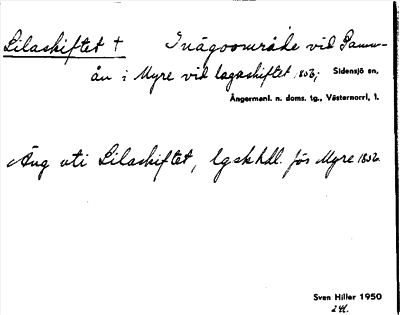 Lilaskiftet † Inägoområde vid Damm-
ån i Myre vid lagaskiftet 1853; Sidensjö sn,
Ångermanl. n. doms. tg., Västernorrl. l.
Äng uti Lilaskiftet, lgskhdl. för Myre 1852.
Sven Hiller 1950